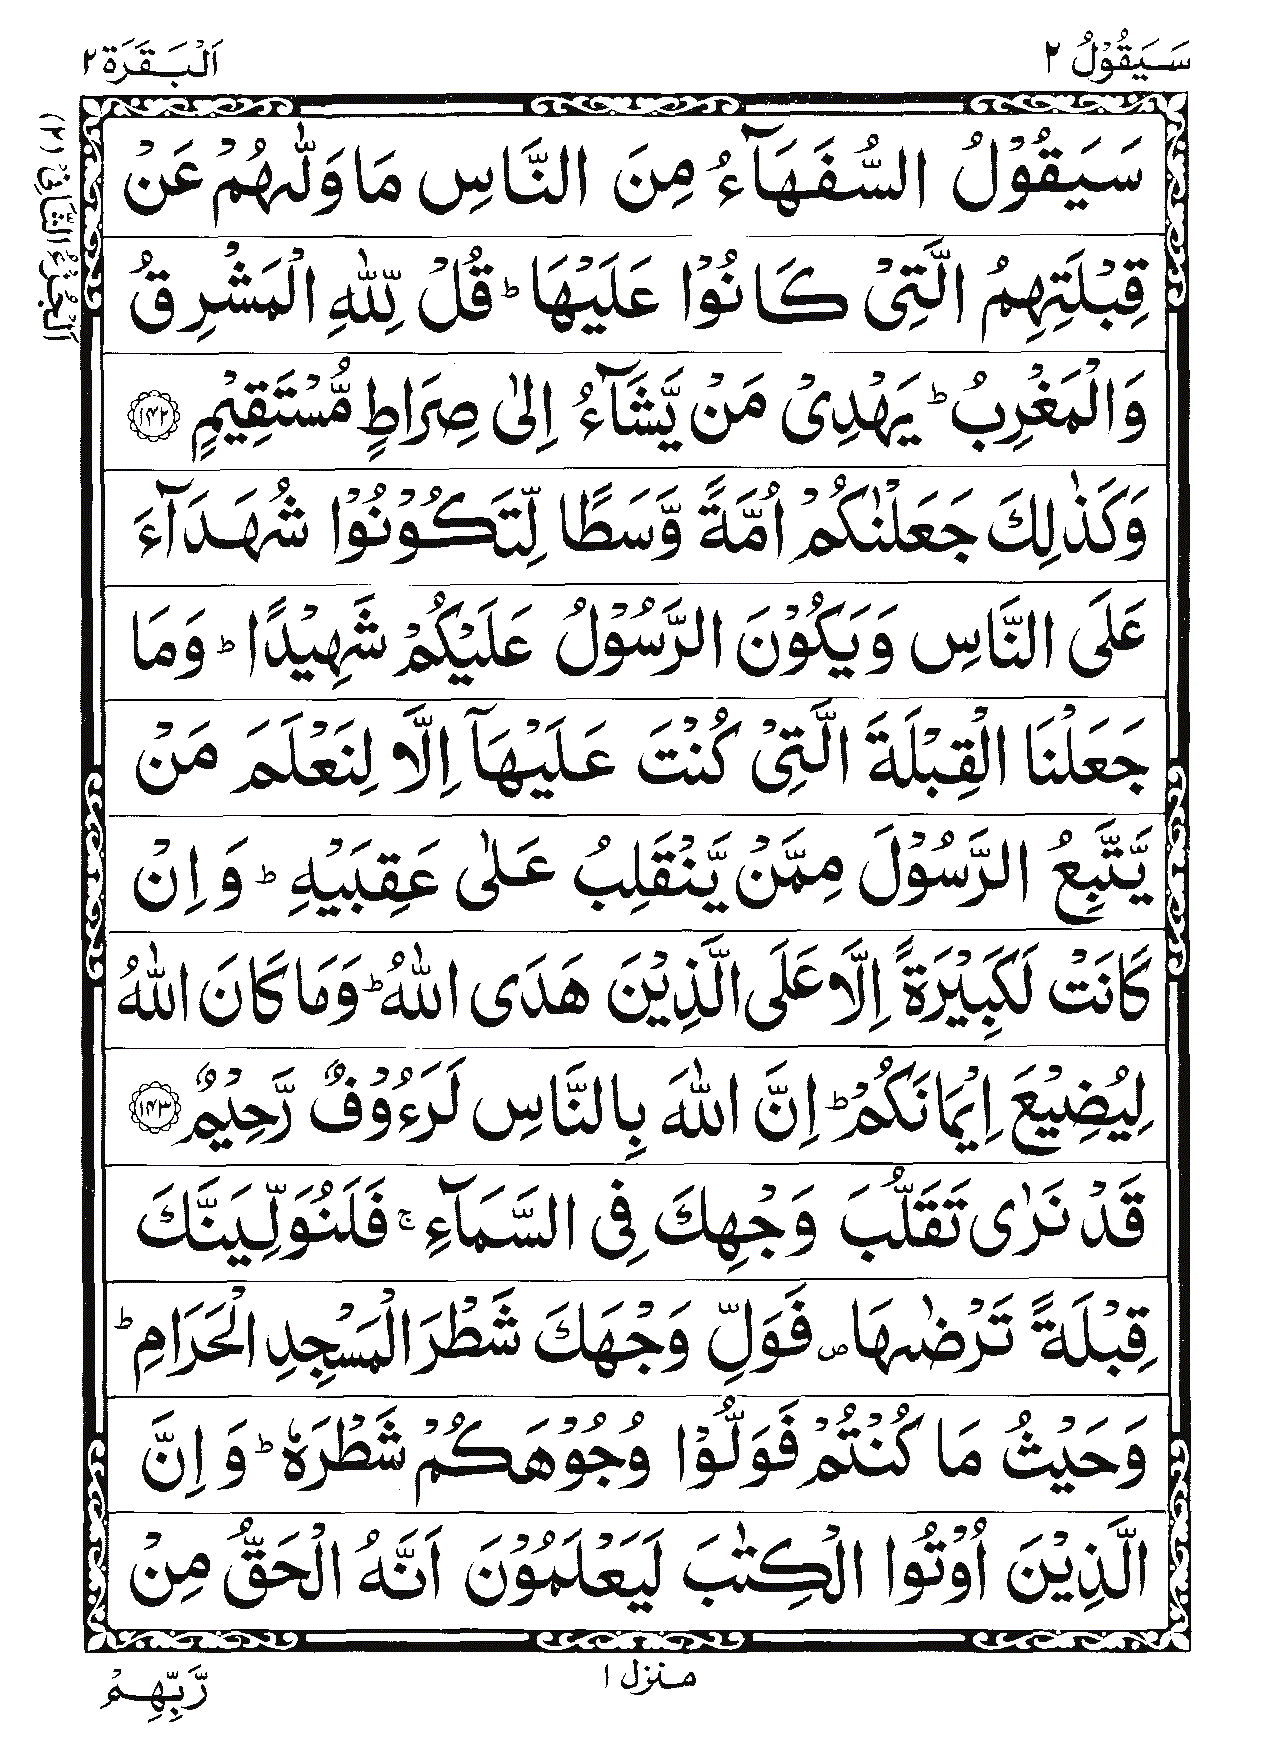 سَيَقُوْلُ ٢
اَلْبَقَرَة ٢
اَلْجُزْءُ الثَّانِیْ (٢)
سَيَقُوْلُ السُّفَهَآءُ مِنَ النَّاسِ مَا وَلّٰىهُمْ عَنْ
قِبْلَتِهِمُ الَّتِىْ كَانُوْا عَلَيْهَا ؕ قُلْ لِّلّٰهِ الْمَشْرِقُ
وَالْمَغْرِبُ ؕ يَهْدِىْ مَنْ يَّشَآءُ اِلٰى صِرَاطٍ مُّسْتَقِيْمٍ ﴿۱۴۲﴾
وَكَذٰلِكَ جَعَلْنٰكُمْ اُمَّةً وَّسَطًا لِّتَكُوْنُوْا شُهَدَآءَ
عَلَى النَّاسِ وَيَكُوْنَ الرَّسُوْلُ عَلَيْكُمْ شَهِيْدًا ؕ وَمَا
جَعَلْنَا الْقِبْلَةَ الَّتِىْ كُنْتَ عَلَيْهَآ اِلَّا لِنَعْلَمَ مَنْ
يَّتَّبِعُ الرَّسُوْلَ مِمَّنْ يَّنْقَلِبُ عَلٰى عَقِبَيْهِ ؕ وَ اِنْ
كَانَتْ لَكَبِيْرَةً اِلَّا عَلَى الَّذِيْنَ هَدَى اللّٰهُ ؕ وَمَا كَانَ اللّٰهُ
لِيُضِيْعَ اِيْمَانَكُمْ ؕ اِنَّ اللّٰهَ بِالنَّاسِ لَرَءُوْفٌ رَّحِيْمٌ ﴿۱۴۳﴾
قَدْ نَرٰى تَقَلُّبَ وَجْهِكَ فِى السَّمَآءِ ۚ فَلَنُوَلِّيَنَّكَ
قِبْلَةً تَرْضٰىهَا ۖ فَوَلِّ وَجْهَكَ شَطْرَ الْمَسْجِدِ الْحَرَامِ ؕ
وَحَيْثُ مَا كُنْتُمْ فَوَلُّوْا وُجُوْهَكُمْ شَطْرَهٗ ؕ وَ اِنَّ
الَّذِيْنَ اُوْتُوا الْكِتٰبَ لَيَعْلَمُوْنَ اَنَّهُ الْحَقُّ مِنْ
منزل ١
رَّبِّهِمْ